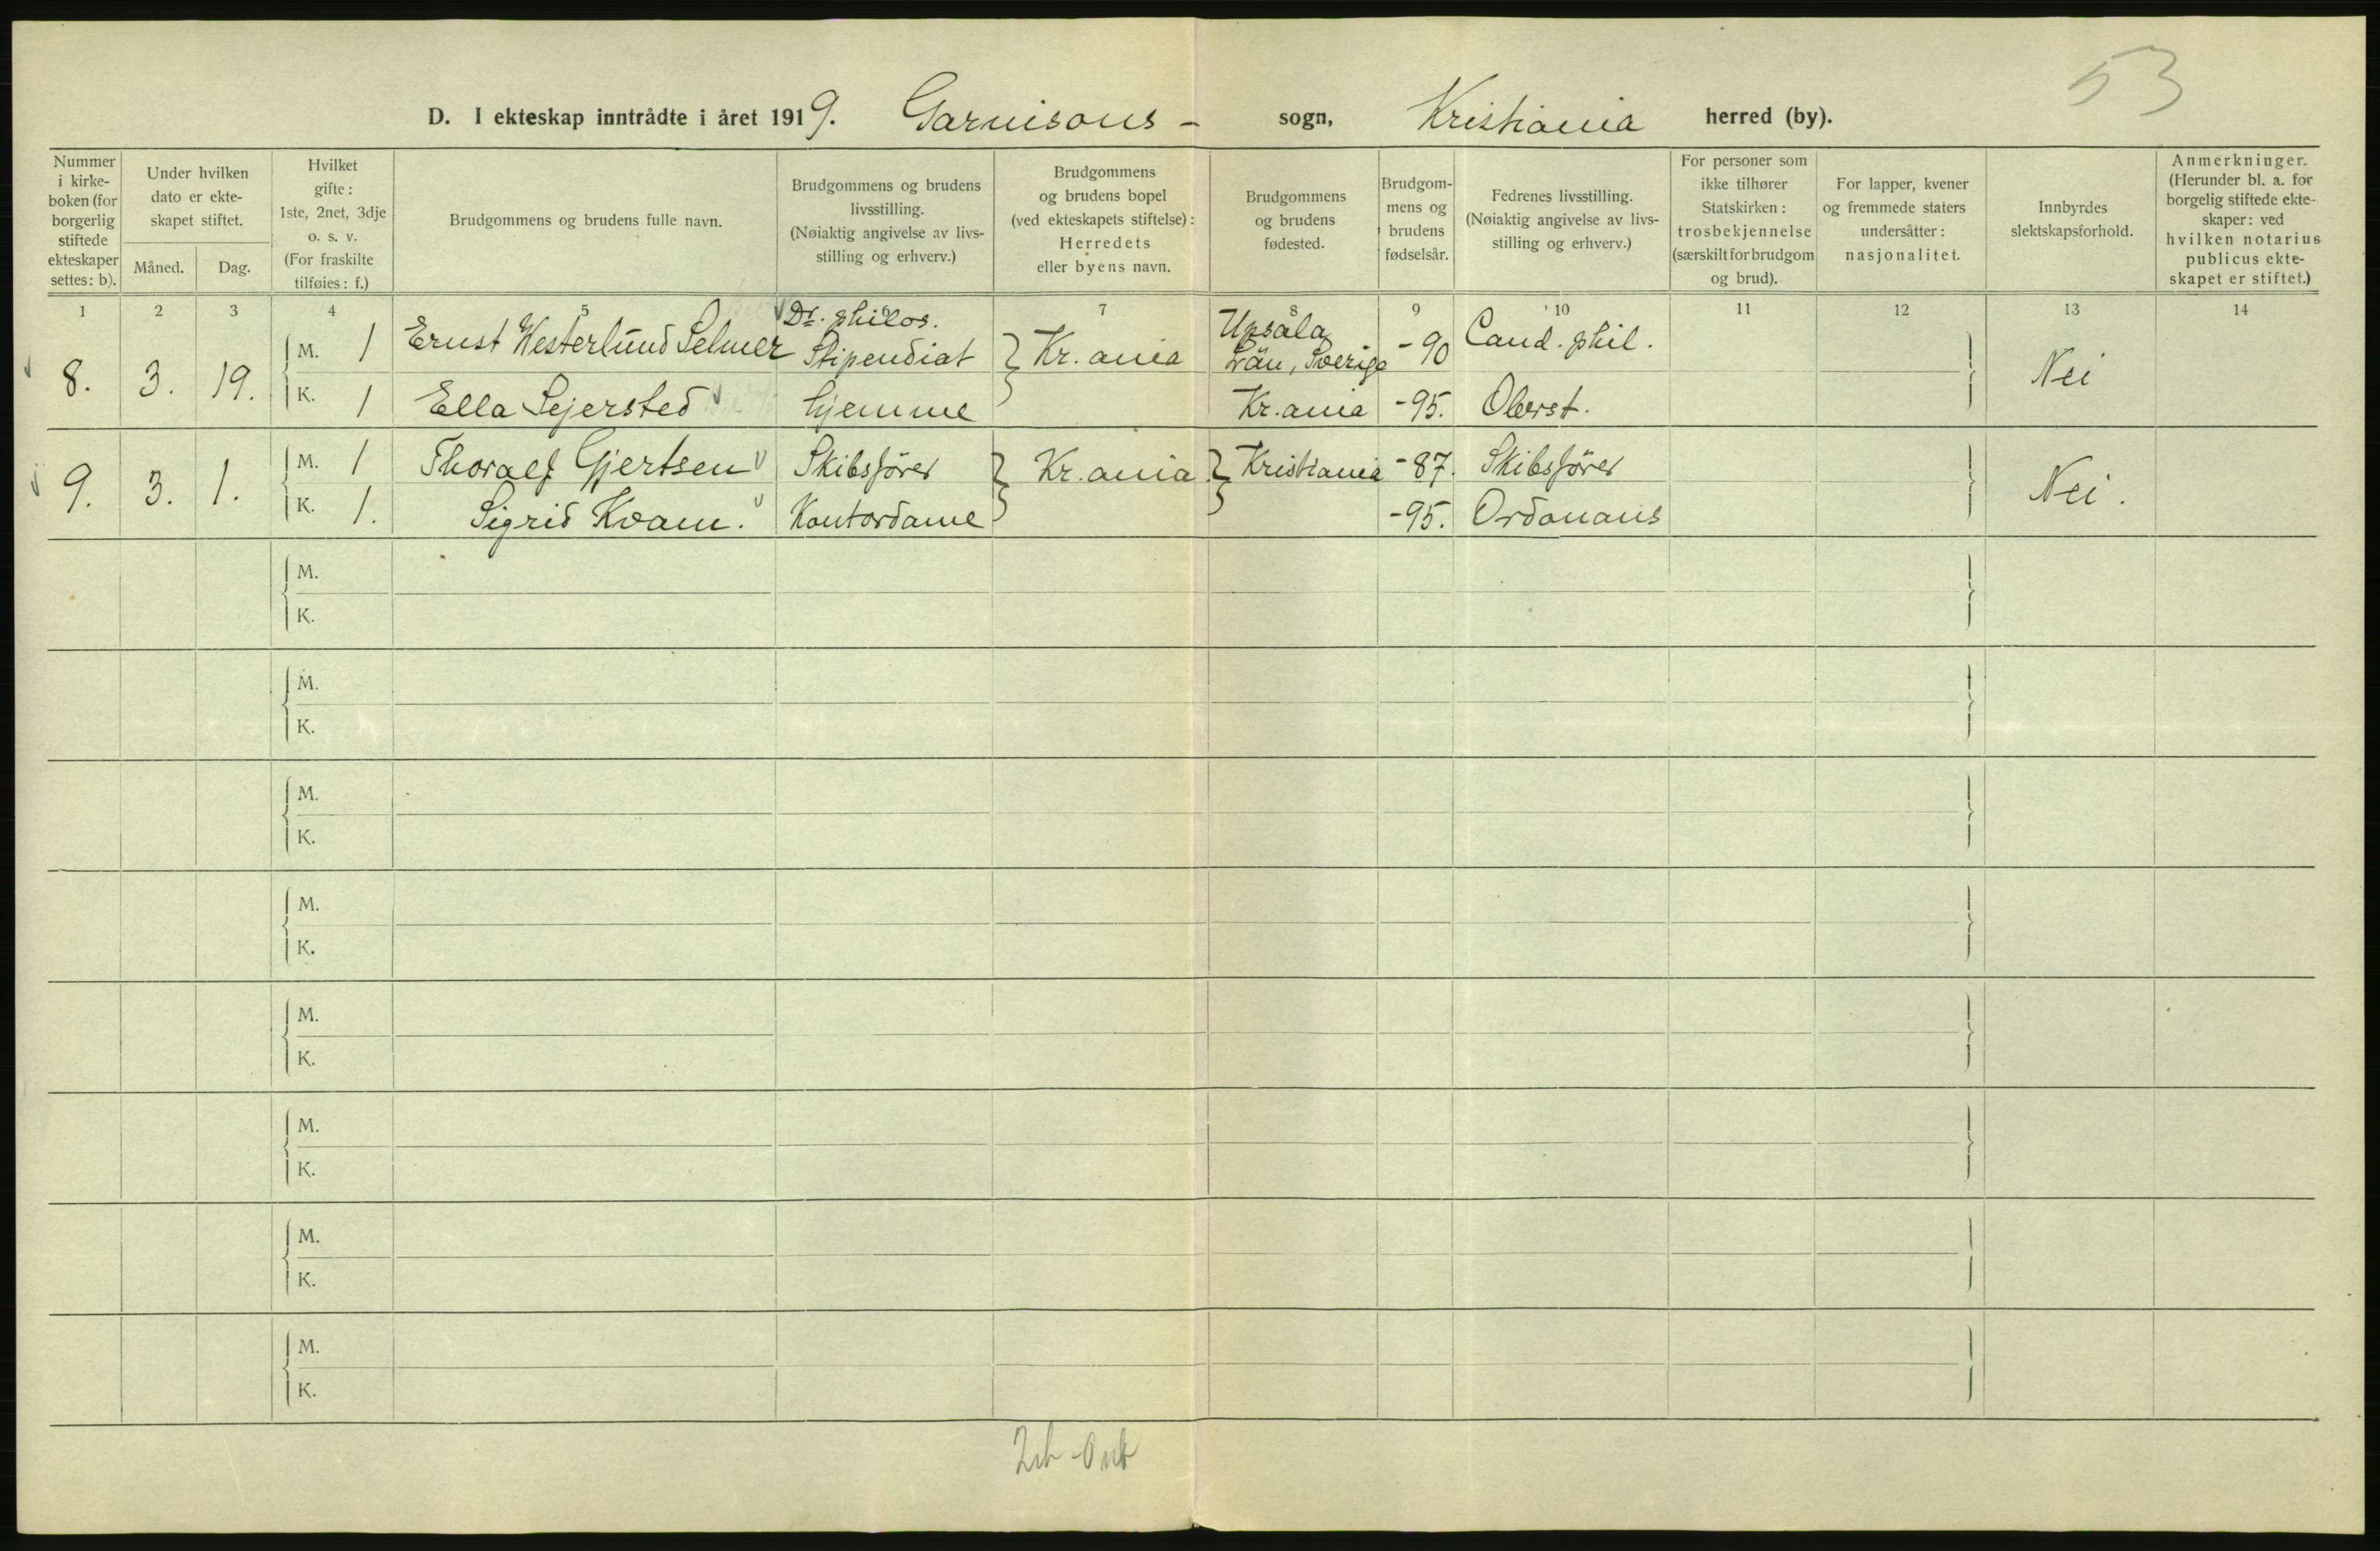 53
D. I ekteskap inntrådte i året 1919. Garnisons- sogn, Kristiania herred (by).
Nummer
i kirke-
boken (for
borgerlig
stiftede
ekteskaper
settes: b).
Under hvilken
dato er ekte-
skapet stiftet.
Måned. Dag.
Hvilket
gifte:
1ste, 2net, 3dje
o. s. v.
(For fraskilte
tilføies: f.)
Brudgommens og brudens fulle navn.
Brudgommens og brudens
livsstilling.
(Nøiaktig angivelse av livs-
stilling og erhverv.)
Brudgommens
og brudens bopel
(ved ekteskapets stiftelse):
Herredets
eller byens navn.
Brudgommens
og brudens
fødested.
Brudgom-
mens og
brudens
fødselsår.
Fedrenes livsstilling.
(Nøiaktig angivelse av livs-
stilling og erhverv.)
For personer som
ikke tilhører
Statskirken:
trosbekjennelse
(særskilt for brudgom
og brud).
For lapper, kvener
og fremmede staters
undersåtter:
nasjonalitet.
Innbyrdes
slektskapsforhold.
Anmerkninger.
(Herunder bl. a. for
borgelig stiftede ekte-
skaper: ved
hvilken notarius
publicus ekte-
skapet er stiftet.)
1 2 3 4 5 6 7 8 9 10 11 12 13 14
8. 3. 19. M. 1 Ernst Westerlund Selmer Dr. philos. Stipendiat Kr.ania Upsala Län, Sverige -90 Cand. phil. Nei
K. 1 Ella Sejersted hjemme Kr.ania -95. Oberst.
9. 3. 1. M. 1 Thoralf Gjertsen Skibsförer Kr.ania Kristiania -87. Skibsförer Nei.
K. 1. Sigrid Kvam. Kontordame -95. Ordonans
M.
K.
M.
K.
M.
K.
M.
K.
M.
K.
M.
K.
M.
K.
M.
K.